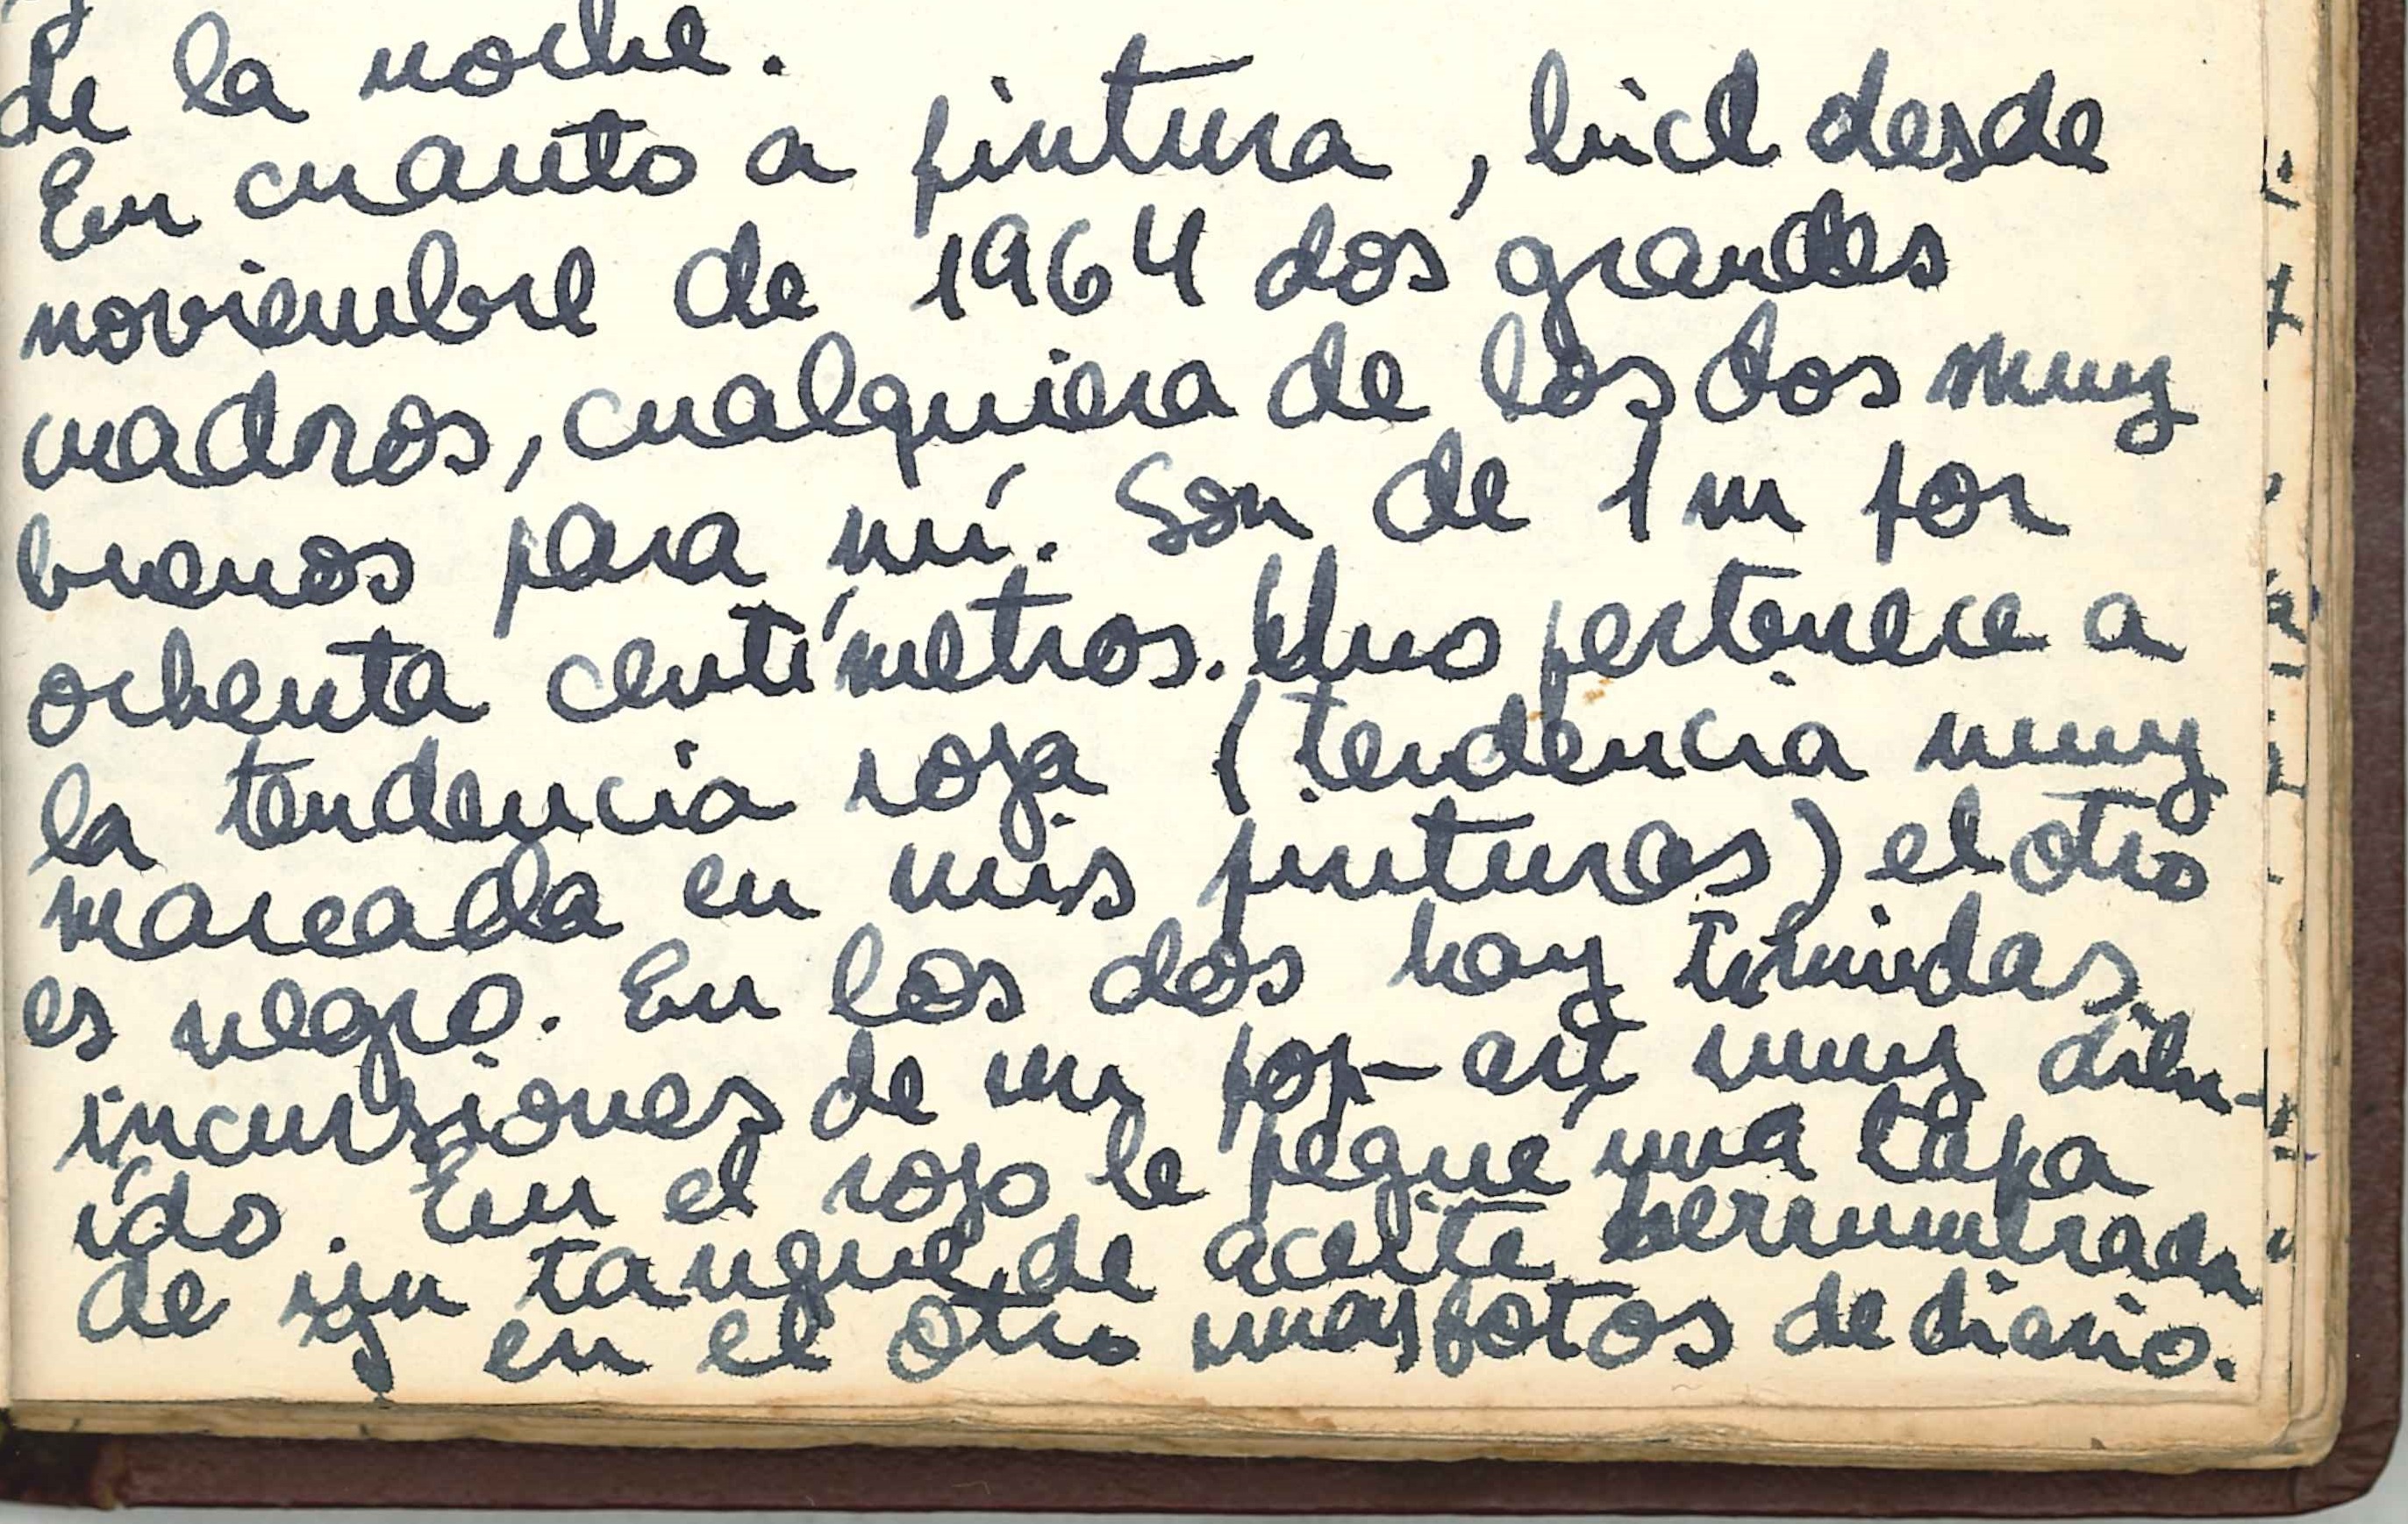 de la noche.
En cuanto a pintura, hice desde
noviembre de 1964 dos grandes
cuadros, cualquiera de los dos muy
buenos para mí. Son de 1 m por
ochenta centímetros. Uno pertenece a
la tendencia roja (tendencia muy
marcada en mis pinturas) el otro
es negro. En los dos hay tímidas
incursiones de un pop-art muy dilu-
ído. En el rojo le pegué una tapa
de un tanque de aceite herrumbrada
y en el otro unas fotos de diario.